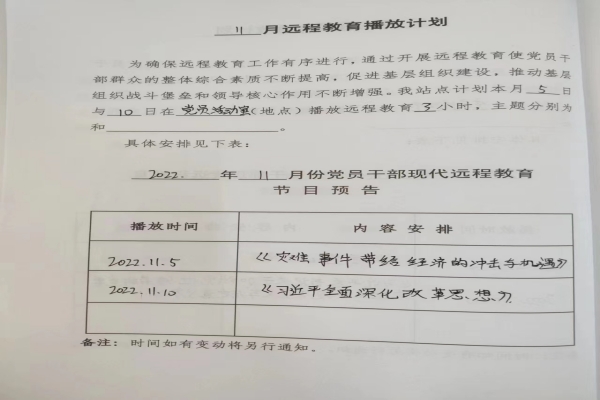 11 月远程教育播放计划
为确保远程教育工作有序进行，通过开展远程教育使党员干
部群众的整体综合素质不断提高，促进基层组织建设，推动基层
组织战斗堡垒和领导核心作用不断增强。我站点计划本月 5 日
与 10 日在 党员活动室（地点）播放远程教育 3 小时，主题分别为
和 。
具体安排见下表：
2022. 年 11 月份党员干部现代远程教育
节目预告
播放时间 内容安排
2022.11.5 《灾难事件带给经济的冲击与机遇》
2022.11.10 《习近平全面深化改革思想》
备注：时间如有变动将另行通知。